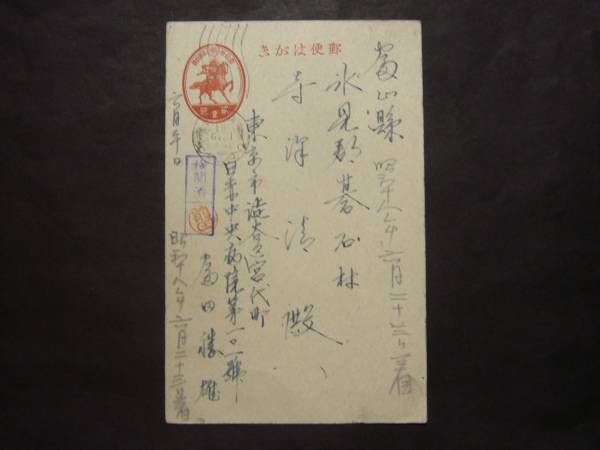 郵便はがき
富山縣
昭和十八年六月二十三日着
氷見郡碁石村
寺澤清殿
東京市澁谷区宮代町
日赤中央病院第一〇一號
富田勝雄
検閲済
六月
昭和十八年六月二十三着